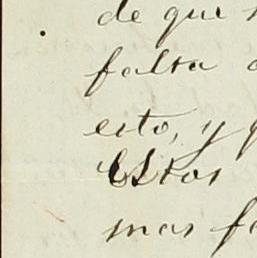 de que
falta
esto, y
Estos
mas